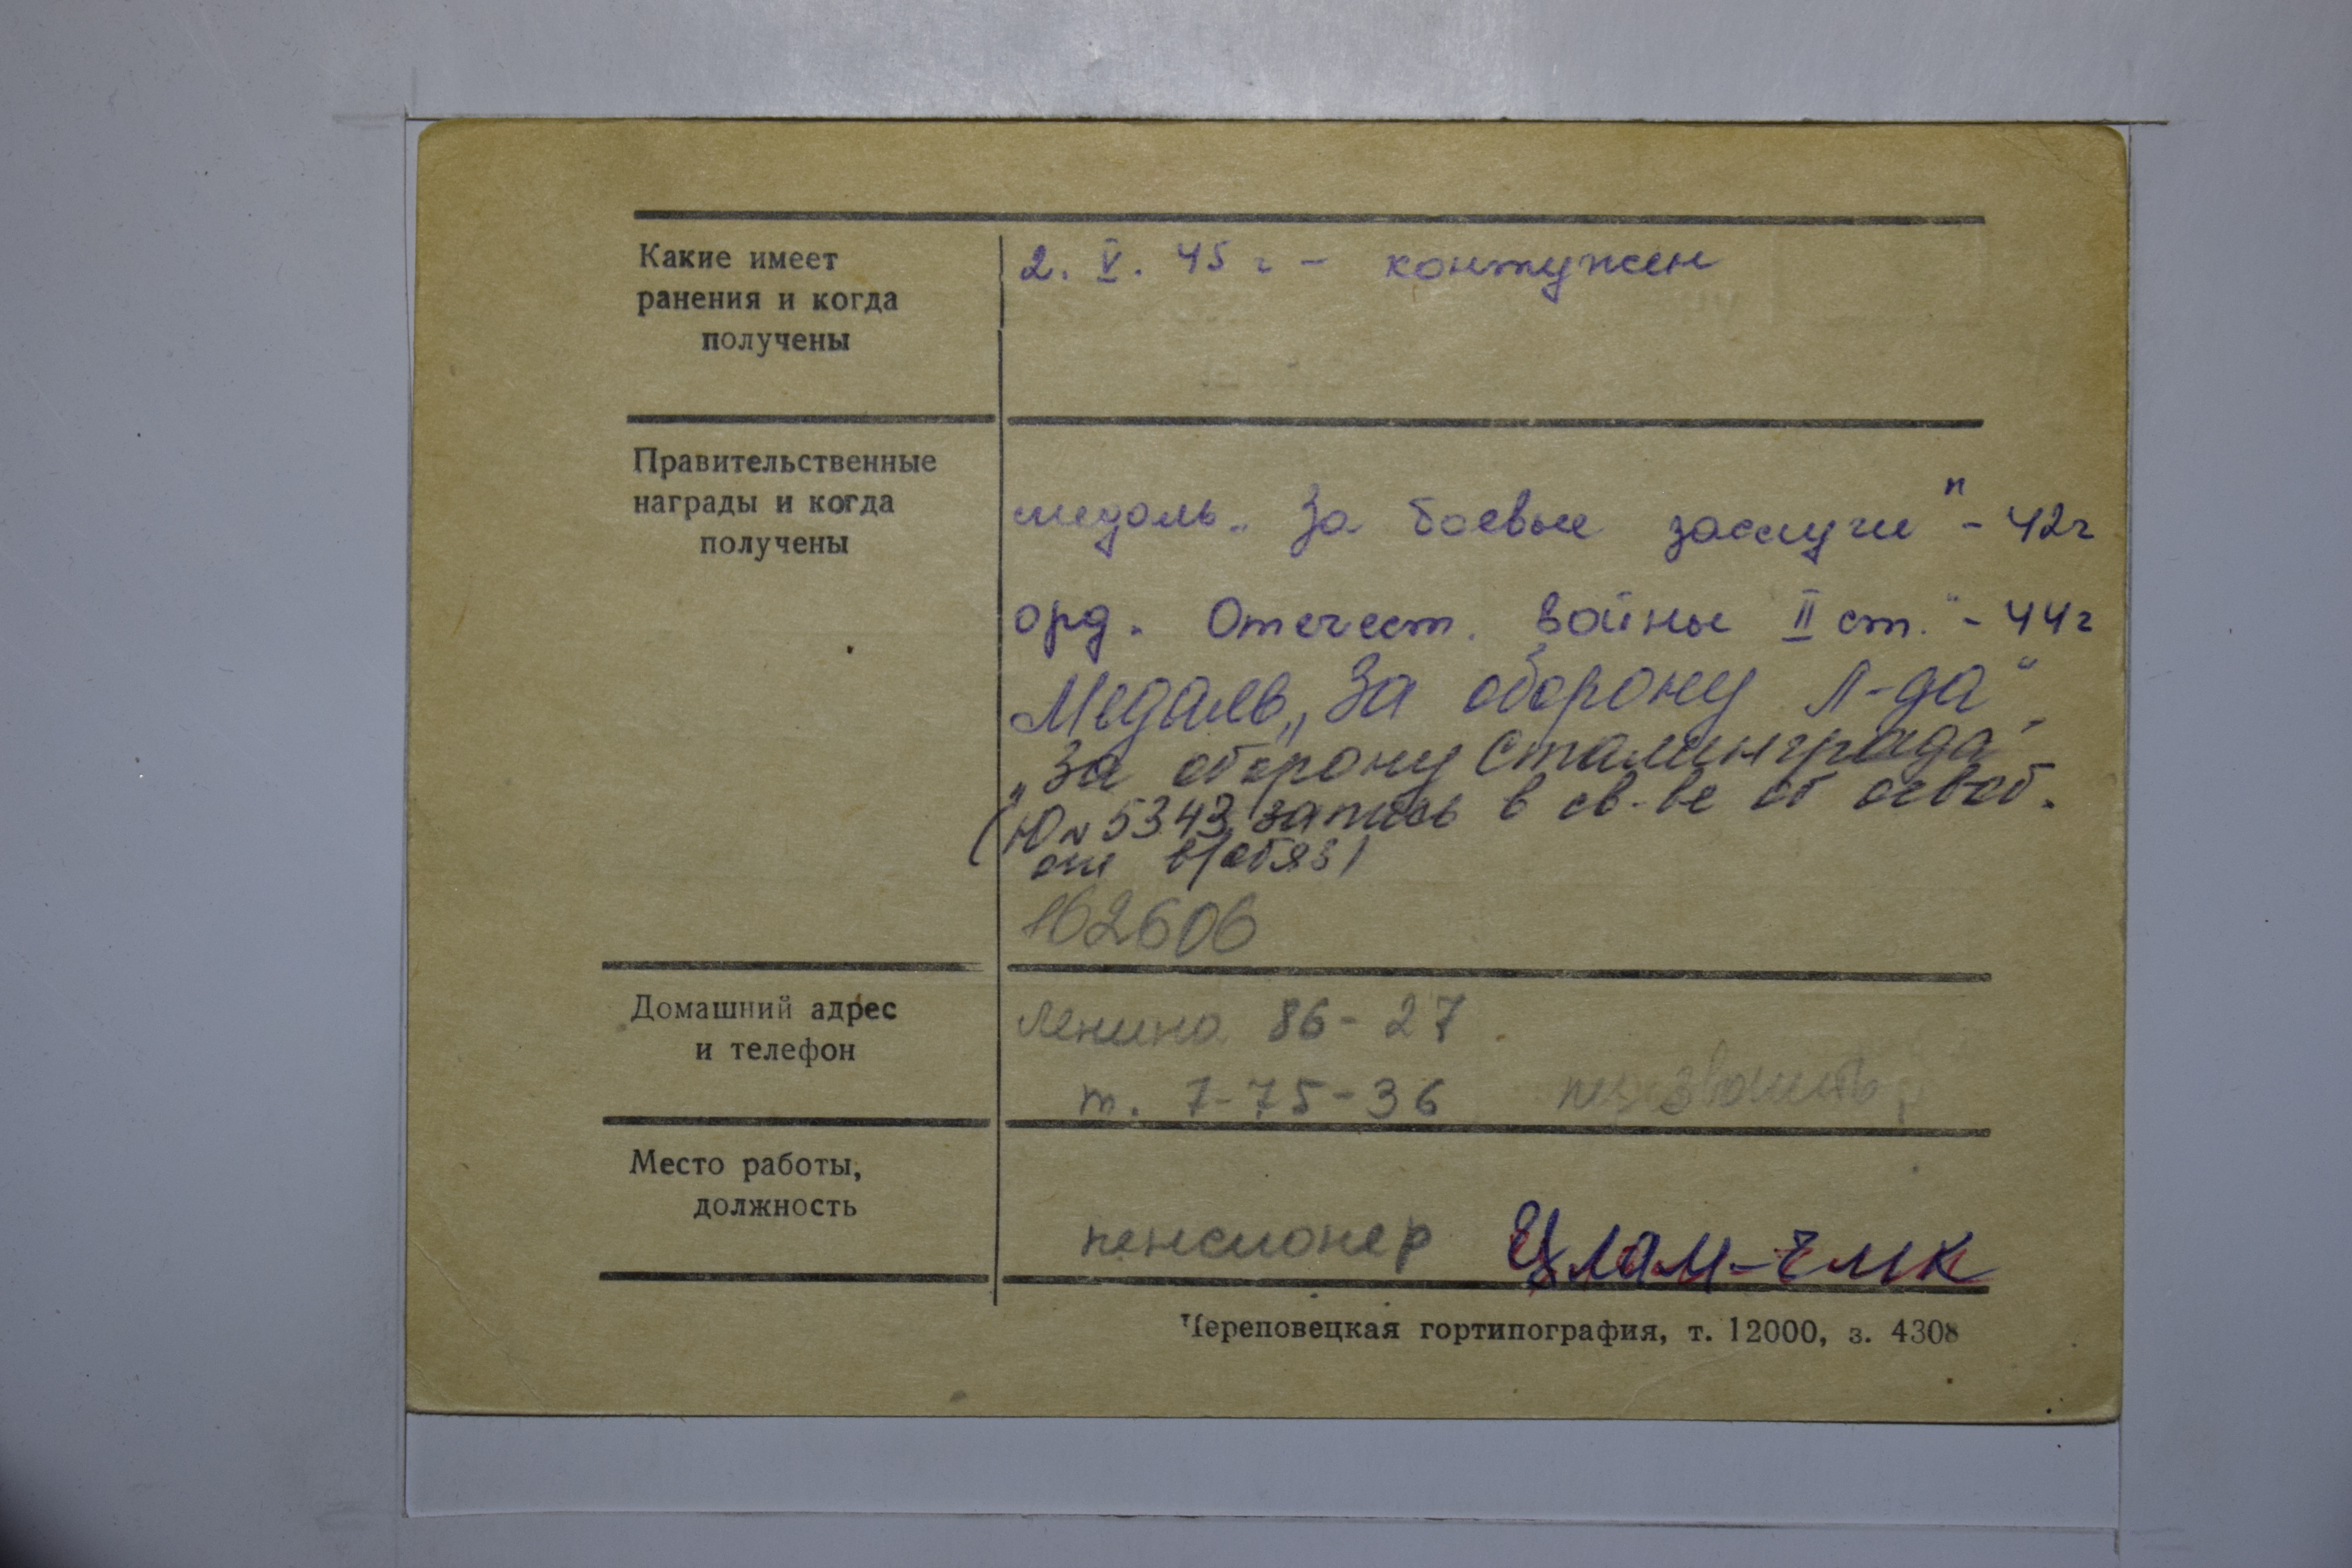 Какие имеет
ранения и когда
получены
2. V. 45 г - контужен
Правительственные
награды и когда
получены
медаль „ За боевые заслуги " - 42г
орд. Отечест. войны II ст." - 44г
Медаль „За оборону Л-да"
„За оборону Сталинграда"
(Ю № 5343 запись в св-ве об освоб.
от в/обяз)
162606
Домашний адрес
и телефон
Ленина 86 - 27
т. 7-75-36
Место работы,
должность
пенсионер
Череповецкая гортипография, т. 12000, з. 4308